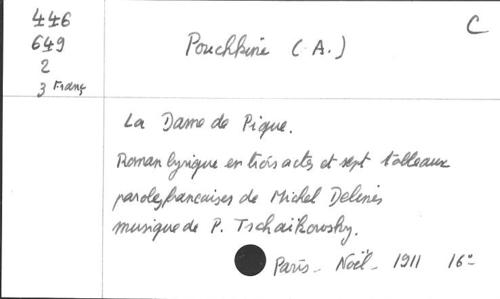 446
649
2
3 Franç
C
Pouchkine (A.)
La Dame de Pique.
Roman lyrique en trois actes et sept tableaux
paroles françaises de Michel Delines
musique de P. Tschaïkowsky.
Paris - Noël - 1911 16°